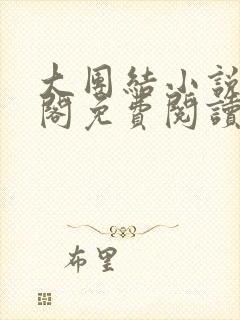 大團結小說
閣免費閱讀
布里